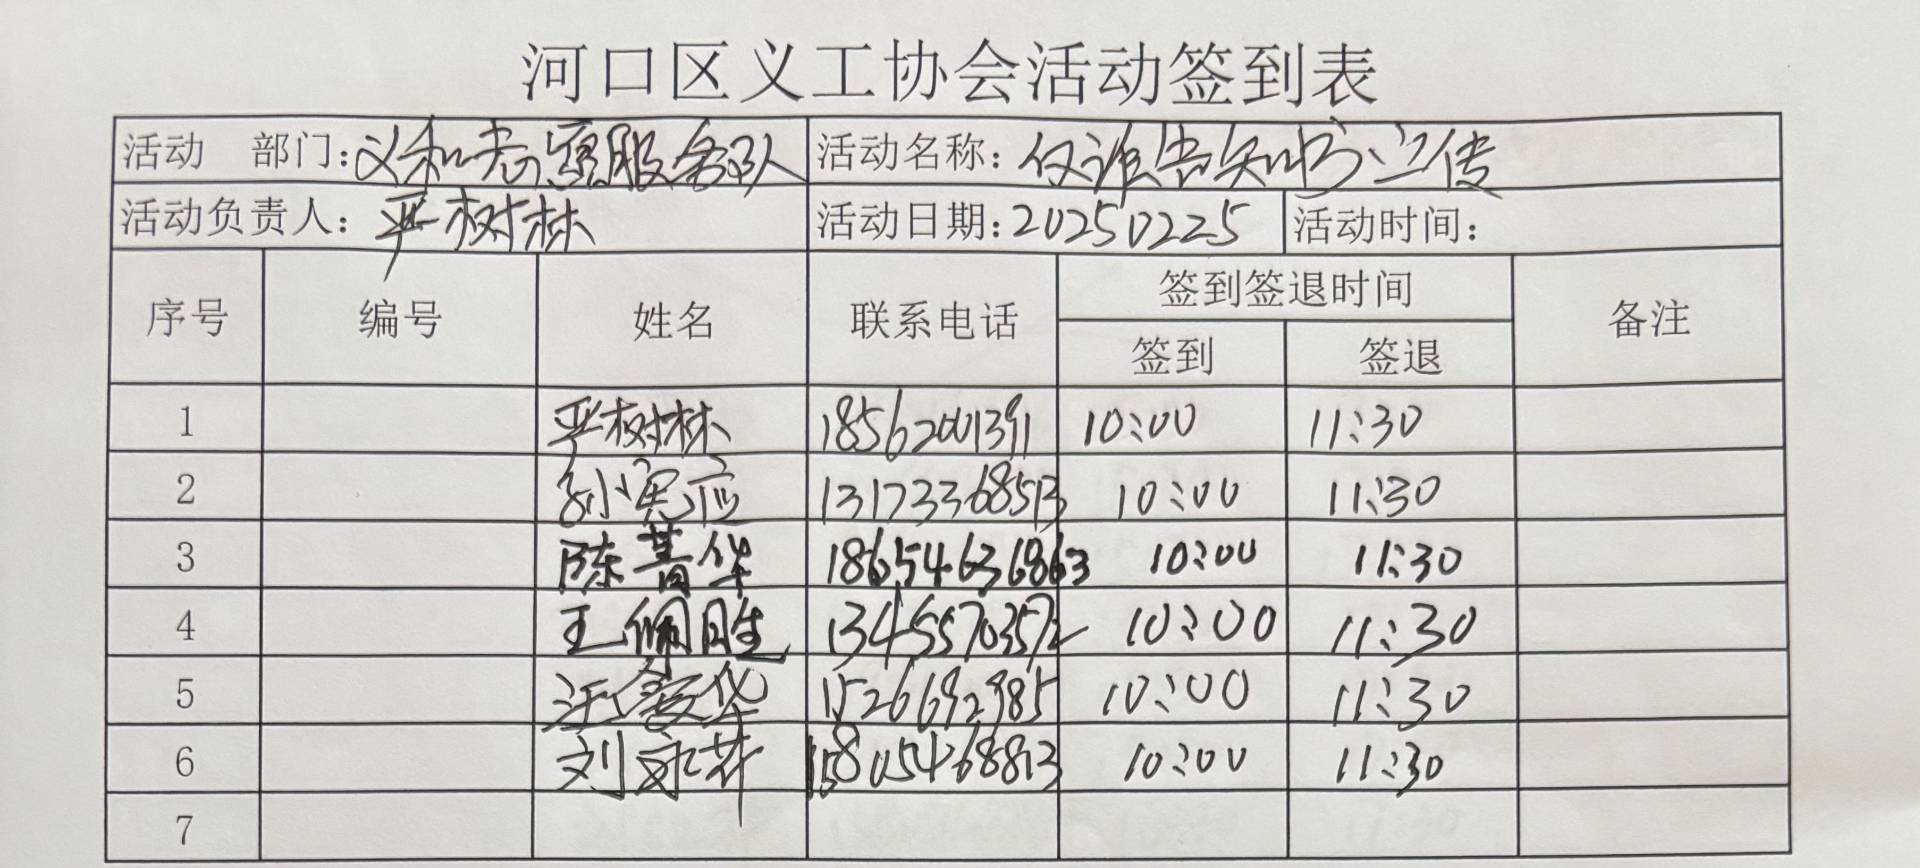 河口区义工协会活动签到表
活动 部门：义和志愿服务队 活动名称：仅谁告知书宣传
活动负责人：严树林 活动日期：20250225 活动时间：
序号 编号 姓名 联系电话 签到签退时间 备注
签到 签退
1 严树林 18562001391 10:00 11:30
2 孙宪应 13173368513 10:00 11:30
3 陈菁华 18654636863 10:00 11:30
4 王佩胜 13455703572 10:00 11:30
5 汪爱华 15266929985 10:00 11:30
6 刘永萍 15805468813 10:00 11:30
7